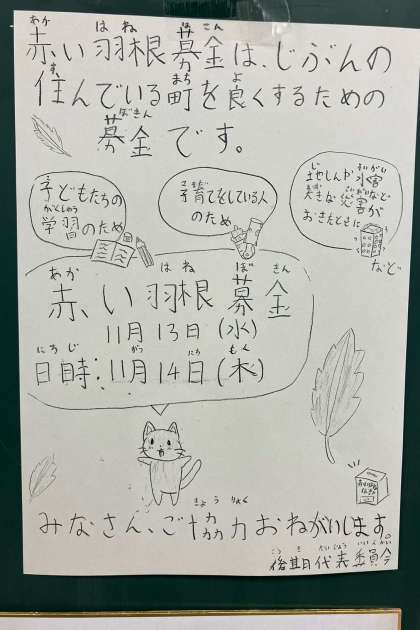 赤い羽根募金は、じぶんの
住んでいる町を良くするための
募金です。
子どもたちの
学習のため
子育てをしている人
のため
地しんや水害
大きな災害が
おきたときに
など
赤い羽根募金
11月13日(水)
日時:11月14日(木)
みなさん、ご協力おねがいします。
後期代表委員会